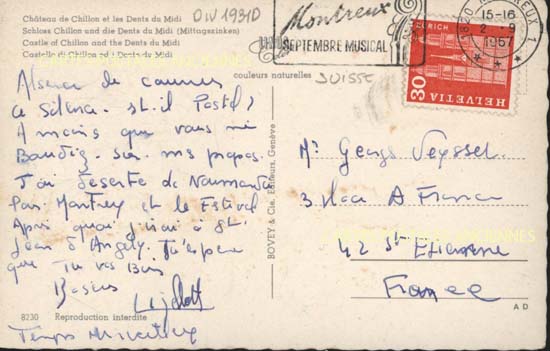 Château de Chillon et les Dents du Midi
Schloss Chillon und die Dents du Midi (Mittagszinken)
Castle of Chillon and the Dents du Midi
Castello di Chillon ed i Denti du Midi
DIV 1931D
Montreux
SEPTEMBRE MUSICAL
1820 MONTREUX 1
15-16
2 - 9
1967
ZURICH
30
HELVETIA
couleurs naturelles
SUISSE
de
ce silence. st-il Postal?
A moins que vous ne
sur mes propos.
J'ai deserté de
Par et le Festival
Après quoi j'irai à St
Jean d'Angely. J'espère
que Tu vas Bien
Lejolot
Temps
BOVEY & Cie, Editeurs, Genève
Mr Georges Veyssel
3 Place A France
42 St Etienne
France
8230 Reproduction interdite
A D